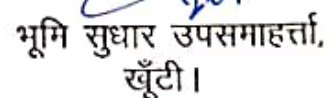 भूमि सुधार उपसमाहर्त्ता,
खूँटी।